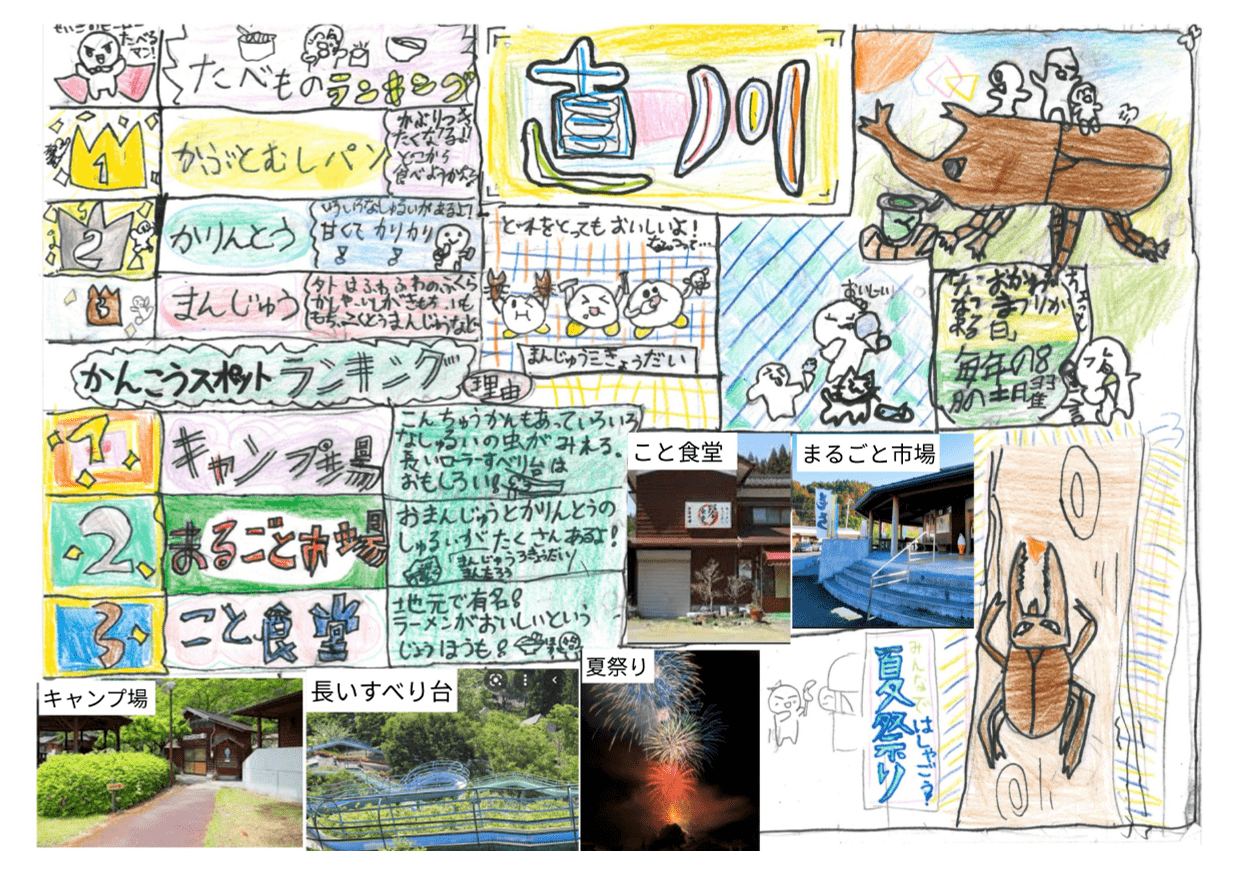 たべるマン!
たべものランキング
1
かぶとむしパン
かぶりつき
たくなる!!
どこから
食べようかなる
2
かりんとう
いろいろなしゅるいがあるよ?
甘くてカリカリ
3
まんじゅう
外はふわふわのふくら
直川
どれをとってもおいしいよ!
なんつって…
まんじゅう三きょうだい
おいしい
おかわ
まつりか
日
毎年の8
月の土曜日
かんこうスポットランキング
理由
1
キャンプ場
こんちゅうかんもあっていろいろ
なしゅるいの虫がみれる。
長いローラーすべり台は
おもしろい!
2
まるごと市場
おまんじゅうとかりんとうの
しゅるいがたくさんあるよ!
まんじゅうろきょうだい
3
こと食堂
地元で有名!
ラーメンがおいしいという
じょうほうも!
こと食堂
まるごと市場
キャンプ場
長いすべり台
夏祭り
みんなで
はしゃごう?
夏祭り